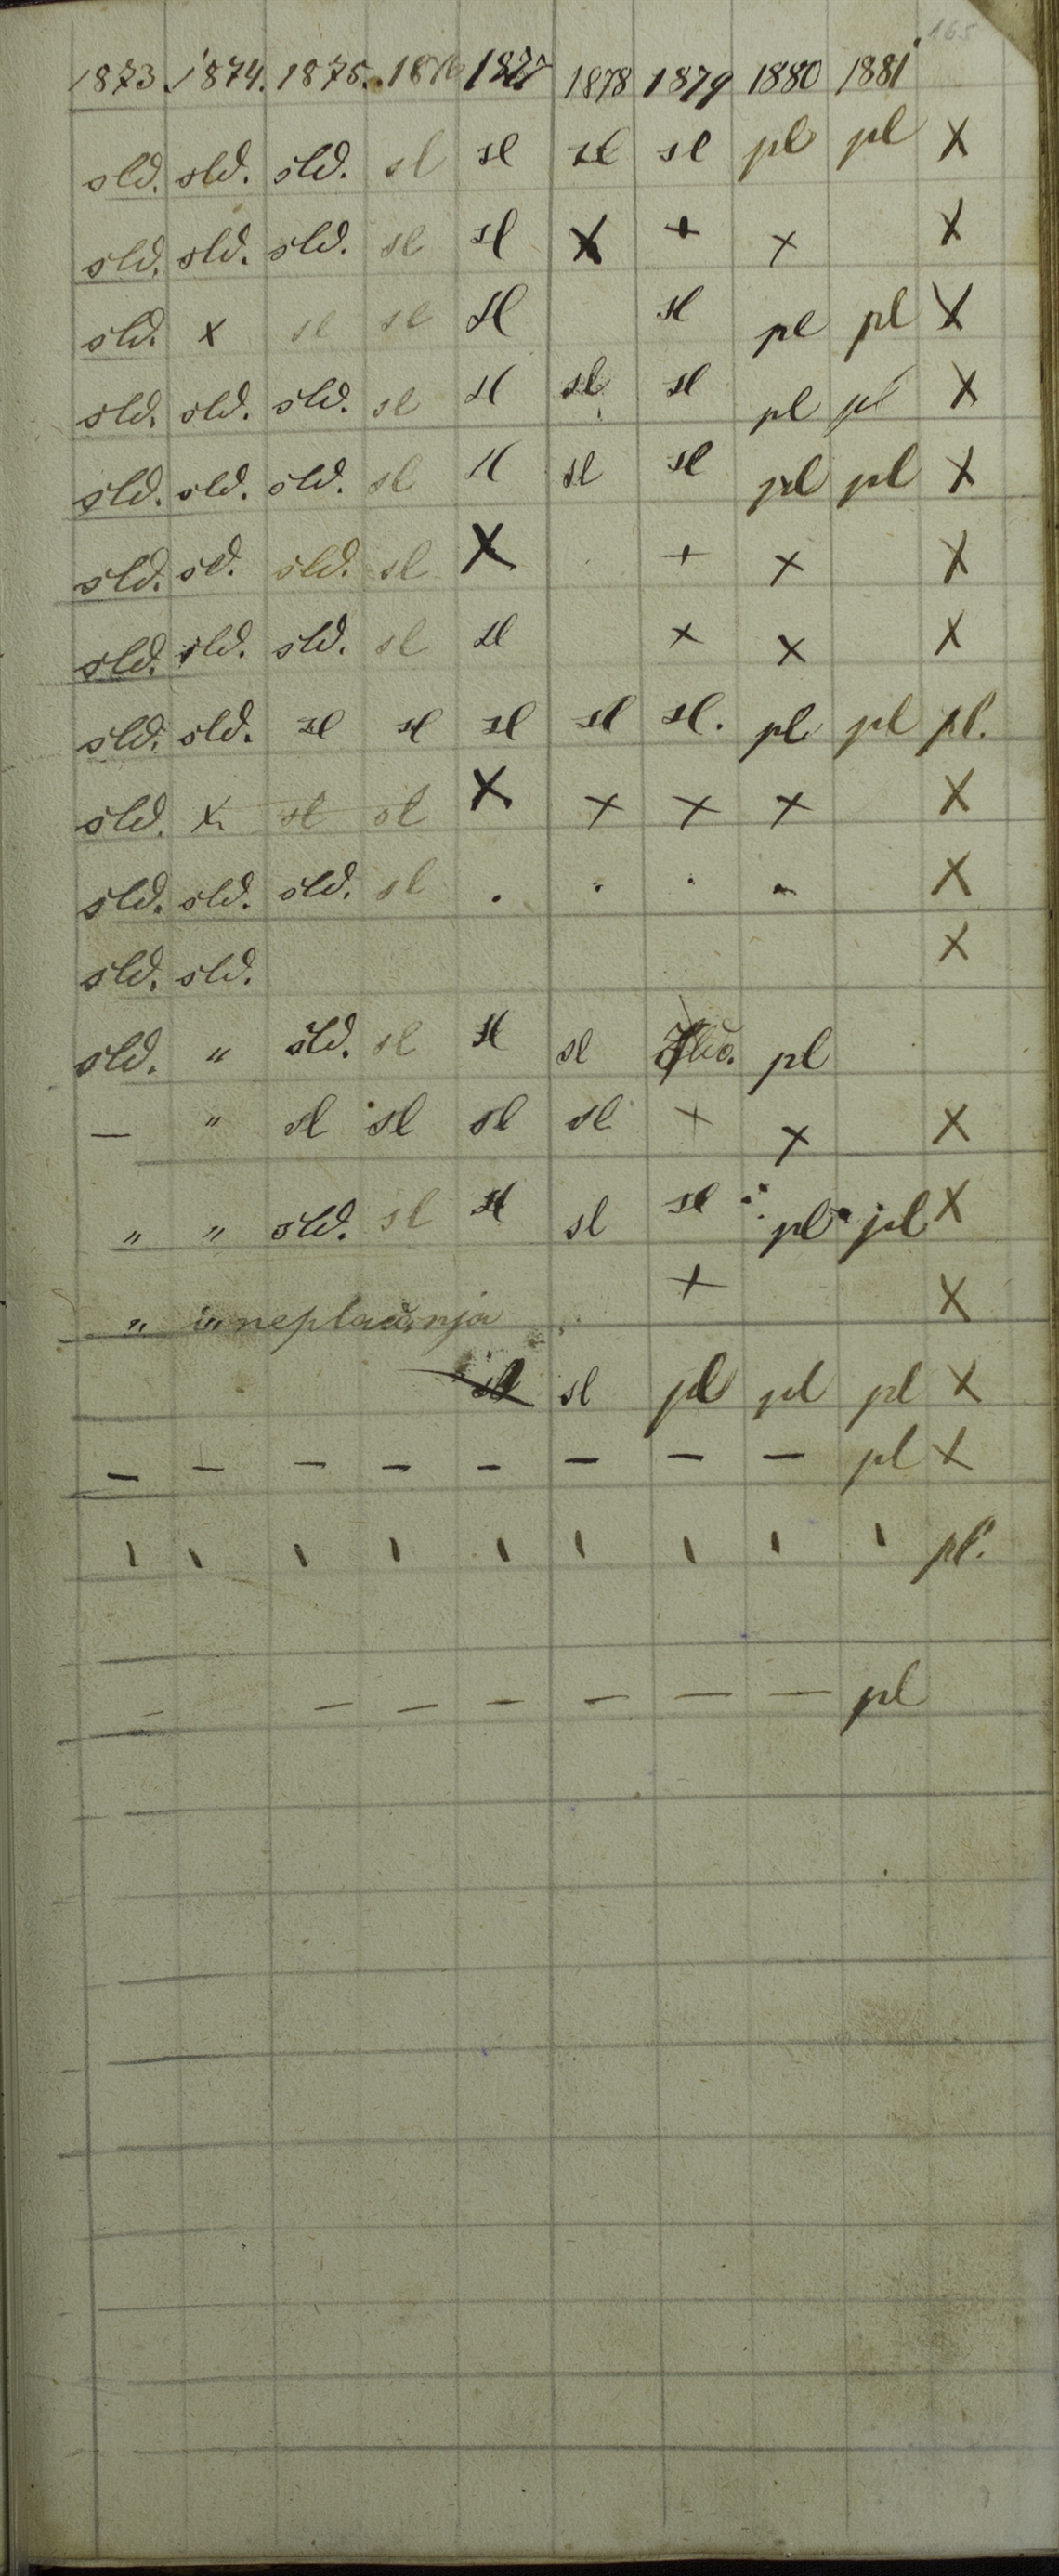 165
1873. 1874. 1875. 1876 1877 1878 1879 1880 1881
slđ. slđ. slđ. sl sl sl sl pl pl X
slđ. slđ. slđ. sl sl X + x X
slđ. x sl sl sl sl pl pl X
slđ. slđ. slđ. sl sl sl sl pl pl X
slđ. slđ. slđ. sl sl sl sl pl pl X
slđ. sđ. slđ. sl X + x X
slđ. slđ. slđ. sl sl x x X
slđ. slđ. sl sl sl sl sl. pl pl pl.
slđ. x sl sl X x x x X
slđ. slđ. slđ. sl . . . - X
slđ. slđ. X
slđ. " slđ. sl sl sl pl
— " sl sl sl sl + x X
" " slđ. sl sl sl sl pl pl X
" " neplaćanja + X
sl sl pl pl pl X
— — — — — — — — pl X
ı ı ı ı ı ı ı ı ı pl.
— — — — — — — pl